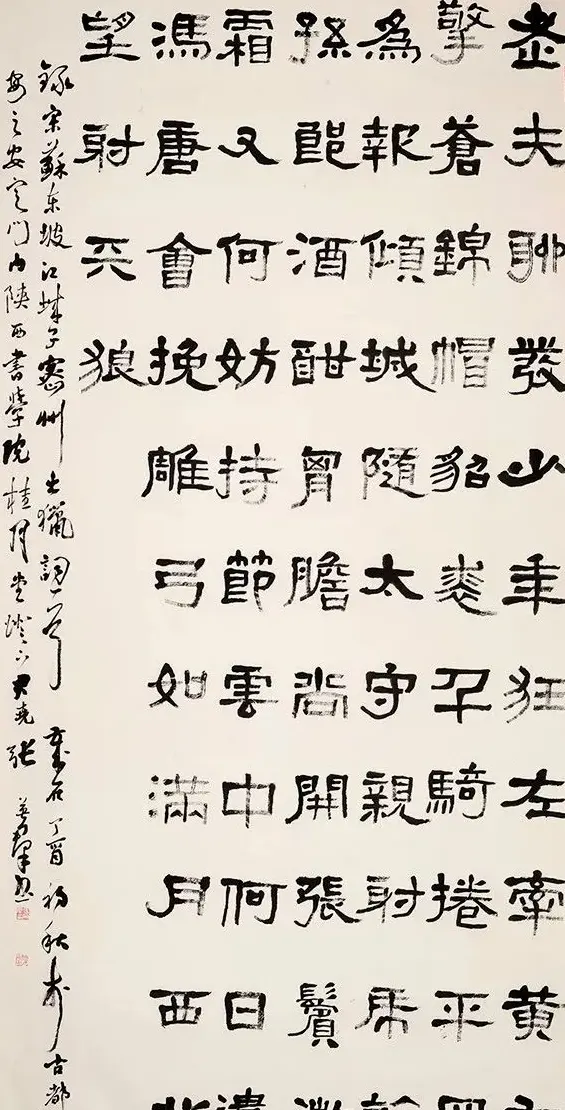 老夫聊發少年狂左牽黃
擎蒼錦帽貂裘千騎捲平
為報傾城隨太守親射虎
孫郎酒酣胸膽尚開張鬢
霜又何妨持節雲中何日遣
馮唐會挽雕弓如滿月西北
望射天狼
錄宋蘇東坡江城子密州出獵詞一首歲在丁酉初秋於古都
安定門內陝西書學院桂月堂燈下張